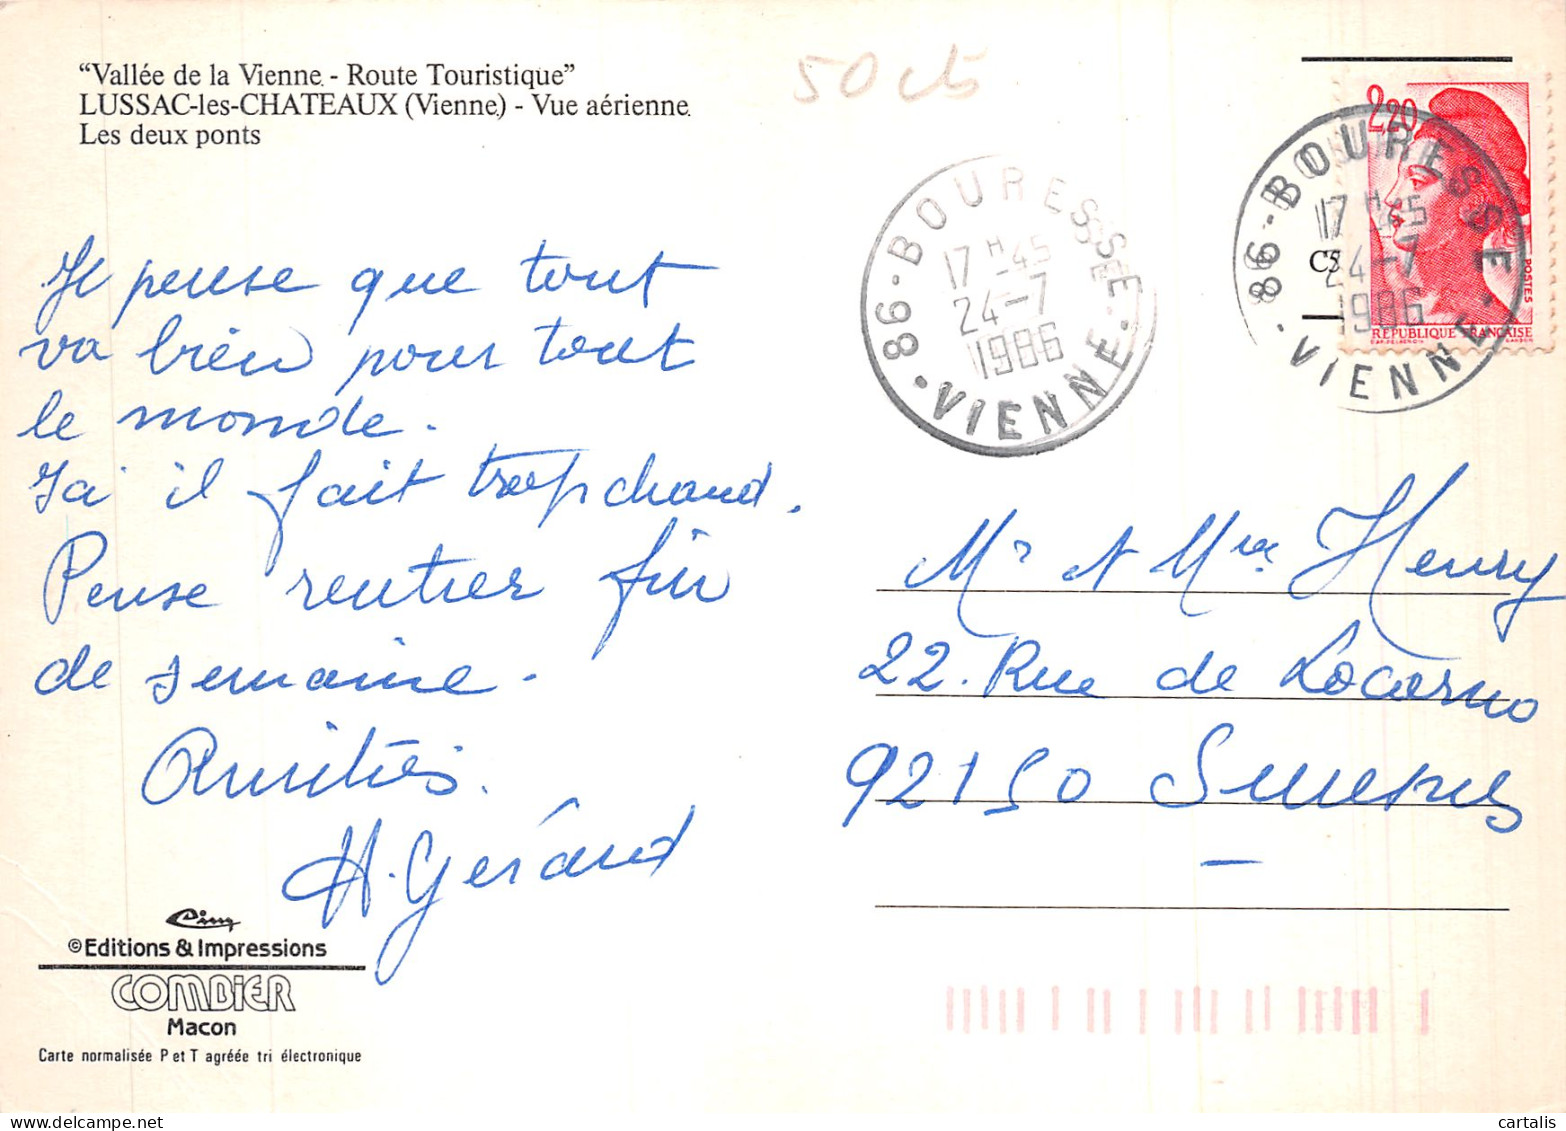 “Vallée de la Vienne - Route Touristique”
LUSSAC-les-CHATEAUX (Vienne) - Vue aérienne
Les deux ponts
50 cts
Je pense que tout
va bien pour tout
le monde.
Ici il fait trop chaud.
Pense rentrer fin
de semaine.
Amitiés.
H. Gérard
Cim
© Editions & Impressions
COMBIER
Macon
Carte normalisée P et T agréée tri électronique
86 - BOURESSE - VIENNE
17 H -45
24-7
1986
2,20
POSTES
REPUBLIQUE FRANÇAISE
86 - BOURESSE - VIENNE
17 H -45
24-7
1986
Mr et Mme Henry
22. Rue de Locarno
92150 Suresnes
cartalis